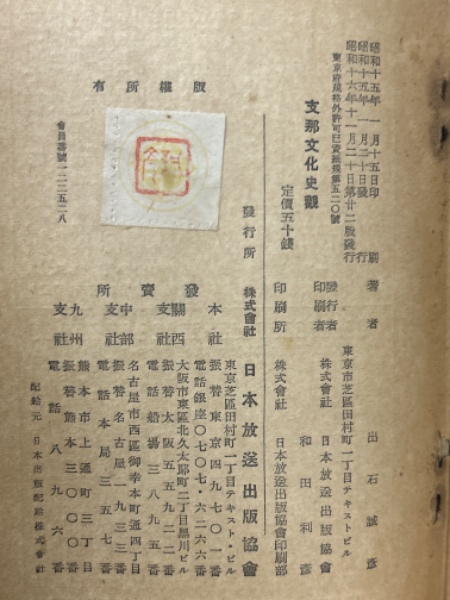 昭和十五年一月十五日印刷
昭和十五年一月二十日發行
昭和十六年十一月二十日第廿二版發行
東京府規格外許可
第五二〇號
支那文化史觀
定價五十錢
著者 出石誠彦
東京市芝區田村町一丁目テキストビル
發行者 株式會社 日本放送出版協會
印刷者 和田利彦
印刷所 株式會社 日本放送出版協會印刷部
發行所 株式會社 日本放送出版協會
版權所有
會員番號一二二五二八
發賣所
本社
東京芝區田村町一丁目テキスト・ビル
振替東京四九七〇一番
電話銀座〇七〇七・六二六六番
關西支社
大阪市東區北久太郎町二丁目黒川ビル
振替大阪五五九二二番
電話船場三八九五番
中部支社
名古屋市西區御幸本町通四丁目
振替名古屋一九三三番
電話本局三五七一番
九州支社
熊本市上通町三丁目
振替熊本三〇〇〇番
電話八九六番
配給元 日本出版配給株式會社